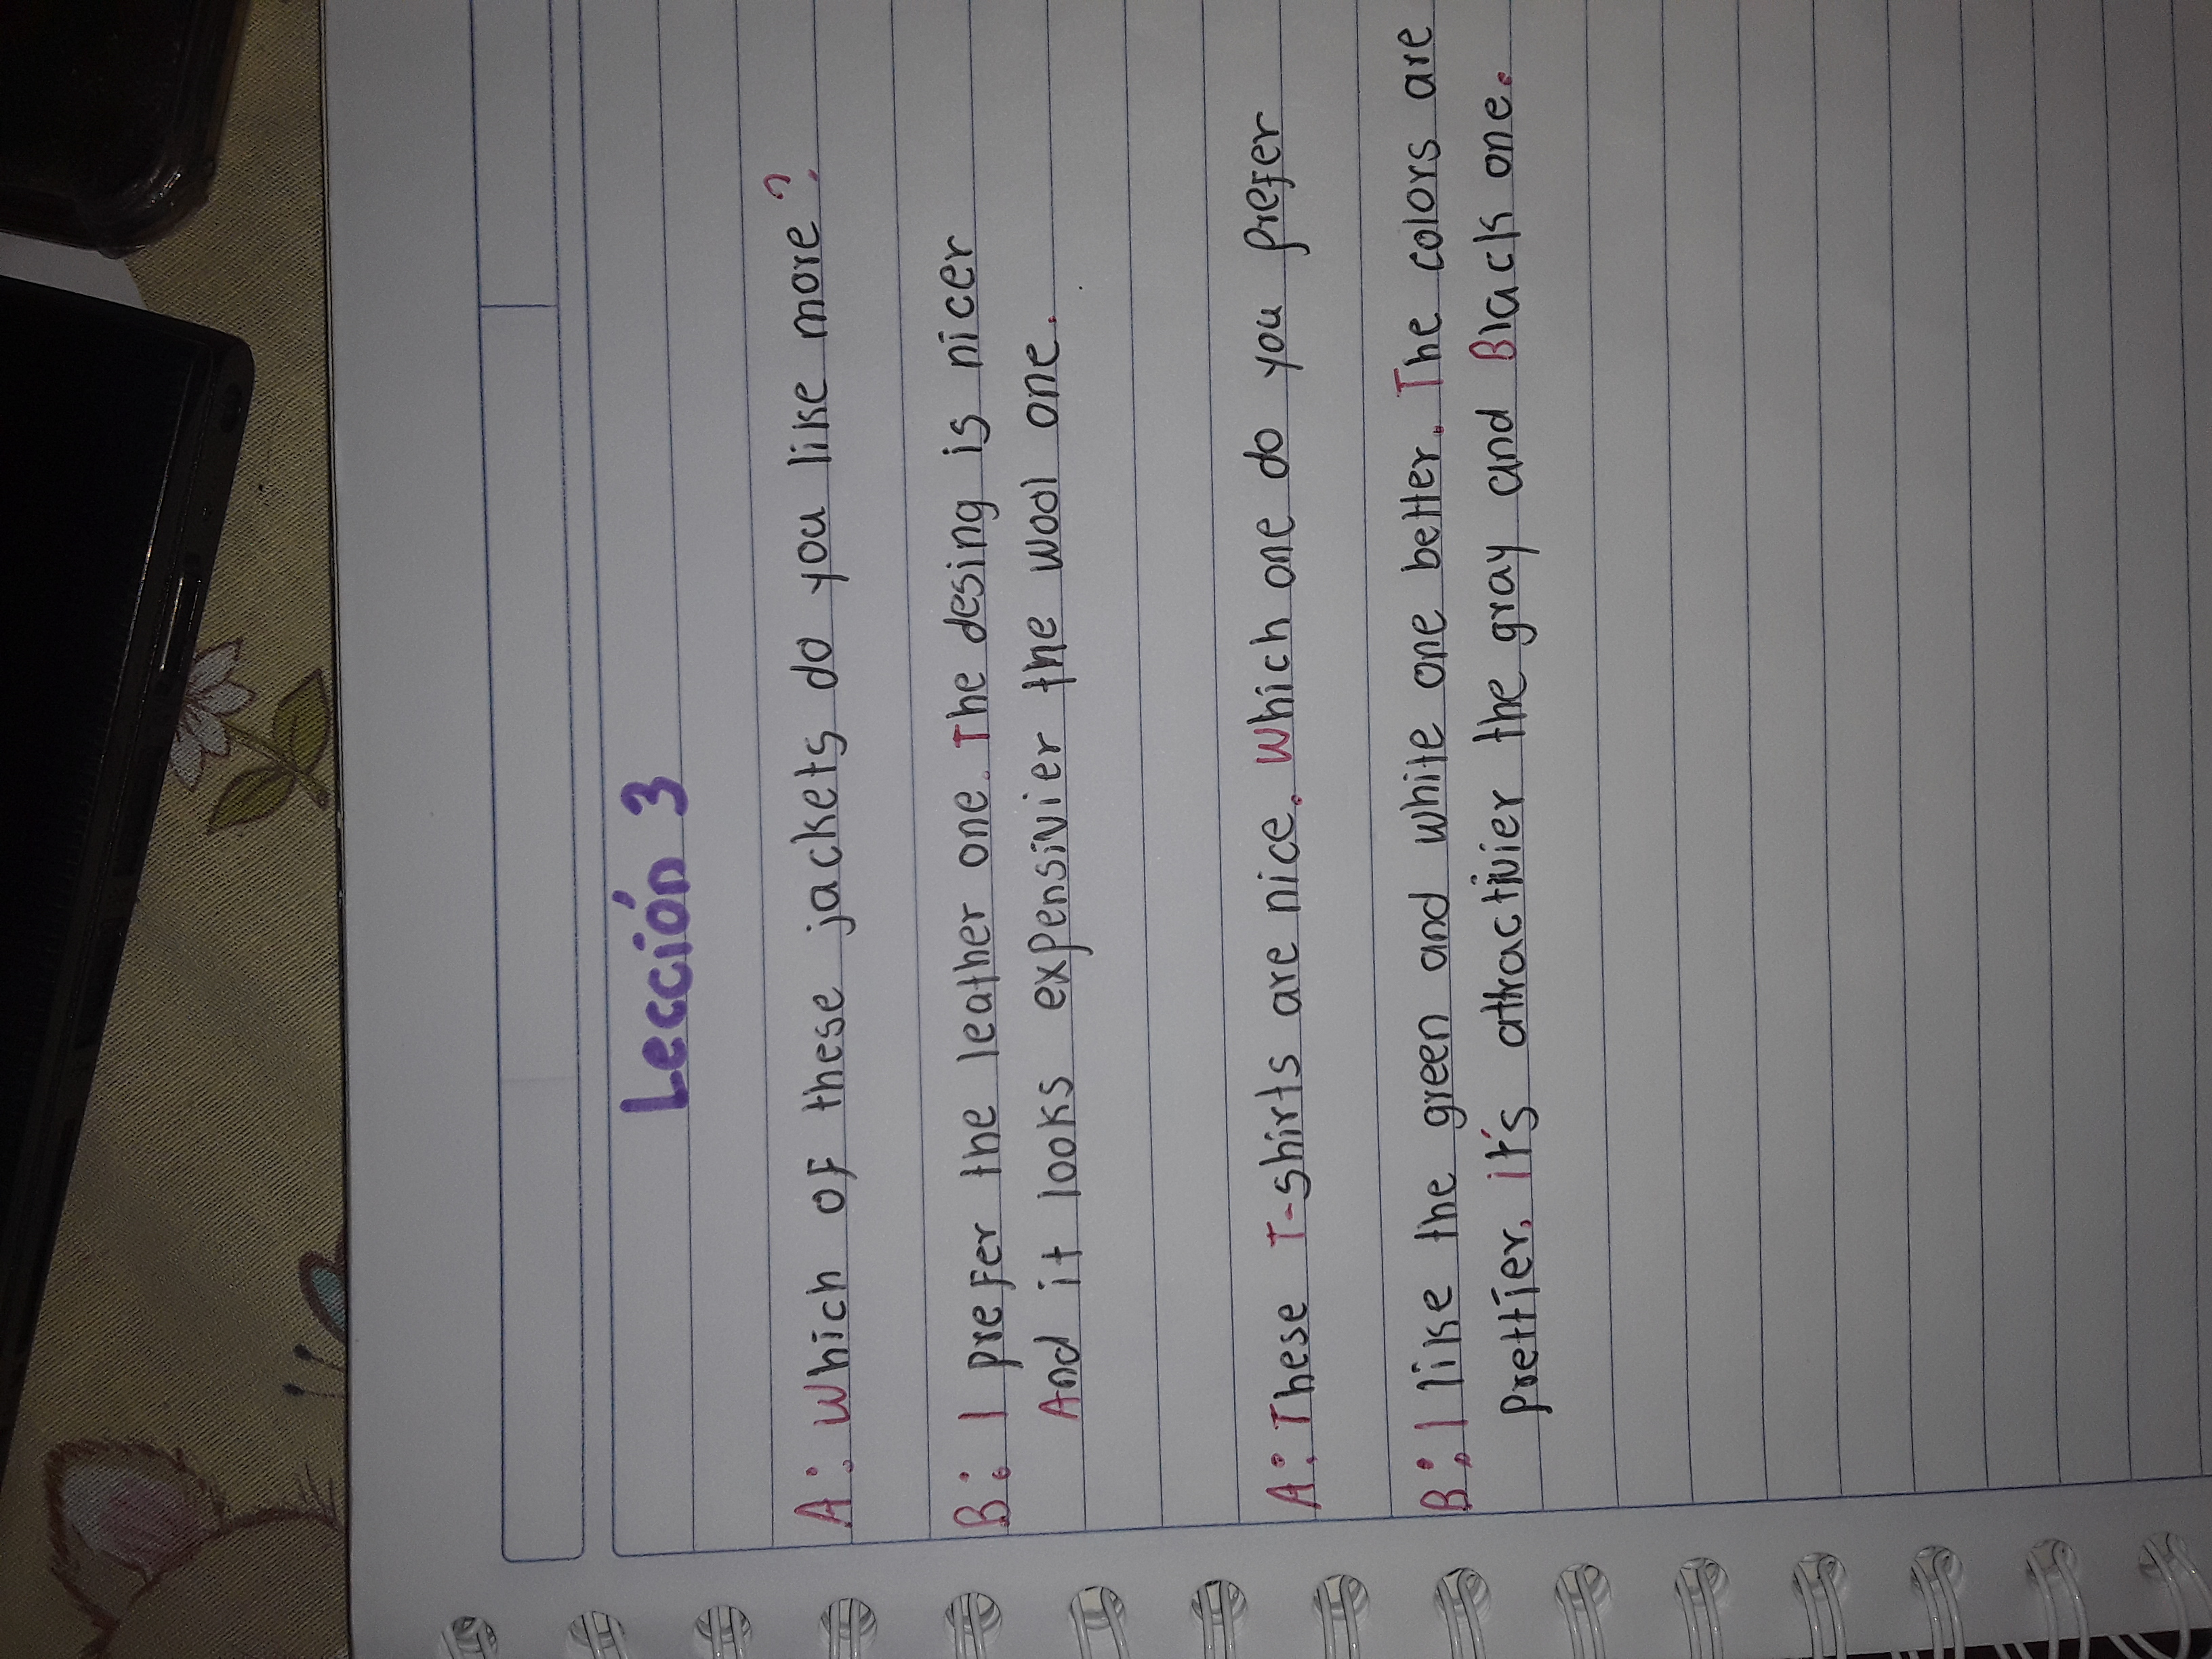 Lección 3
A: Which of these jackets do you like more?
B: I prefer the leather one. The desing is nicer
And it looks expensivier the wool one.
A: These T-shirts are nice. Which one do you prefer
B: I like the green and white one better. The colors are
prettier. it's attractivier the gray and Black one.